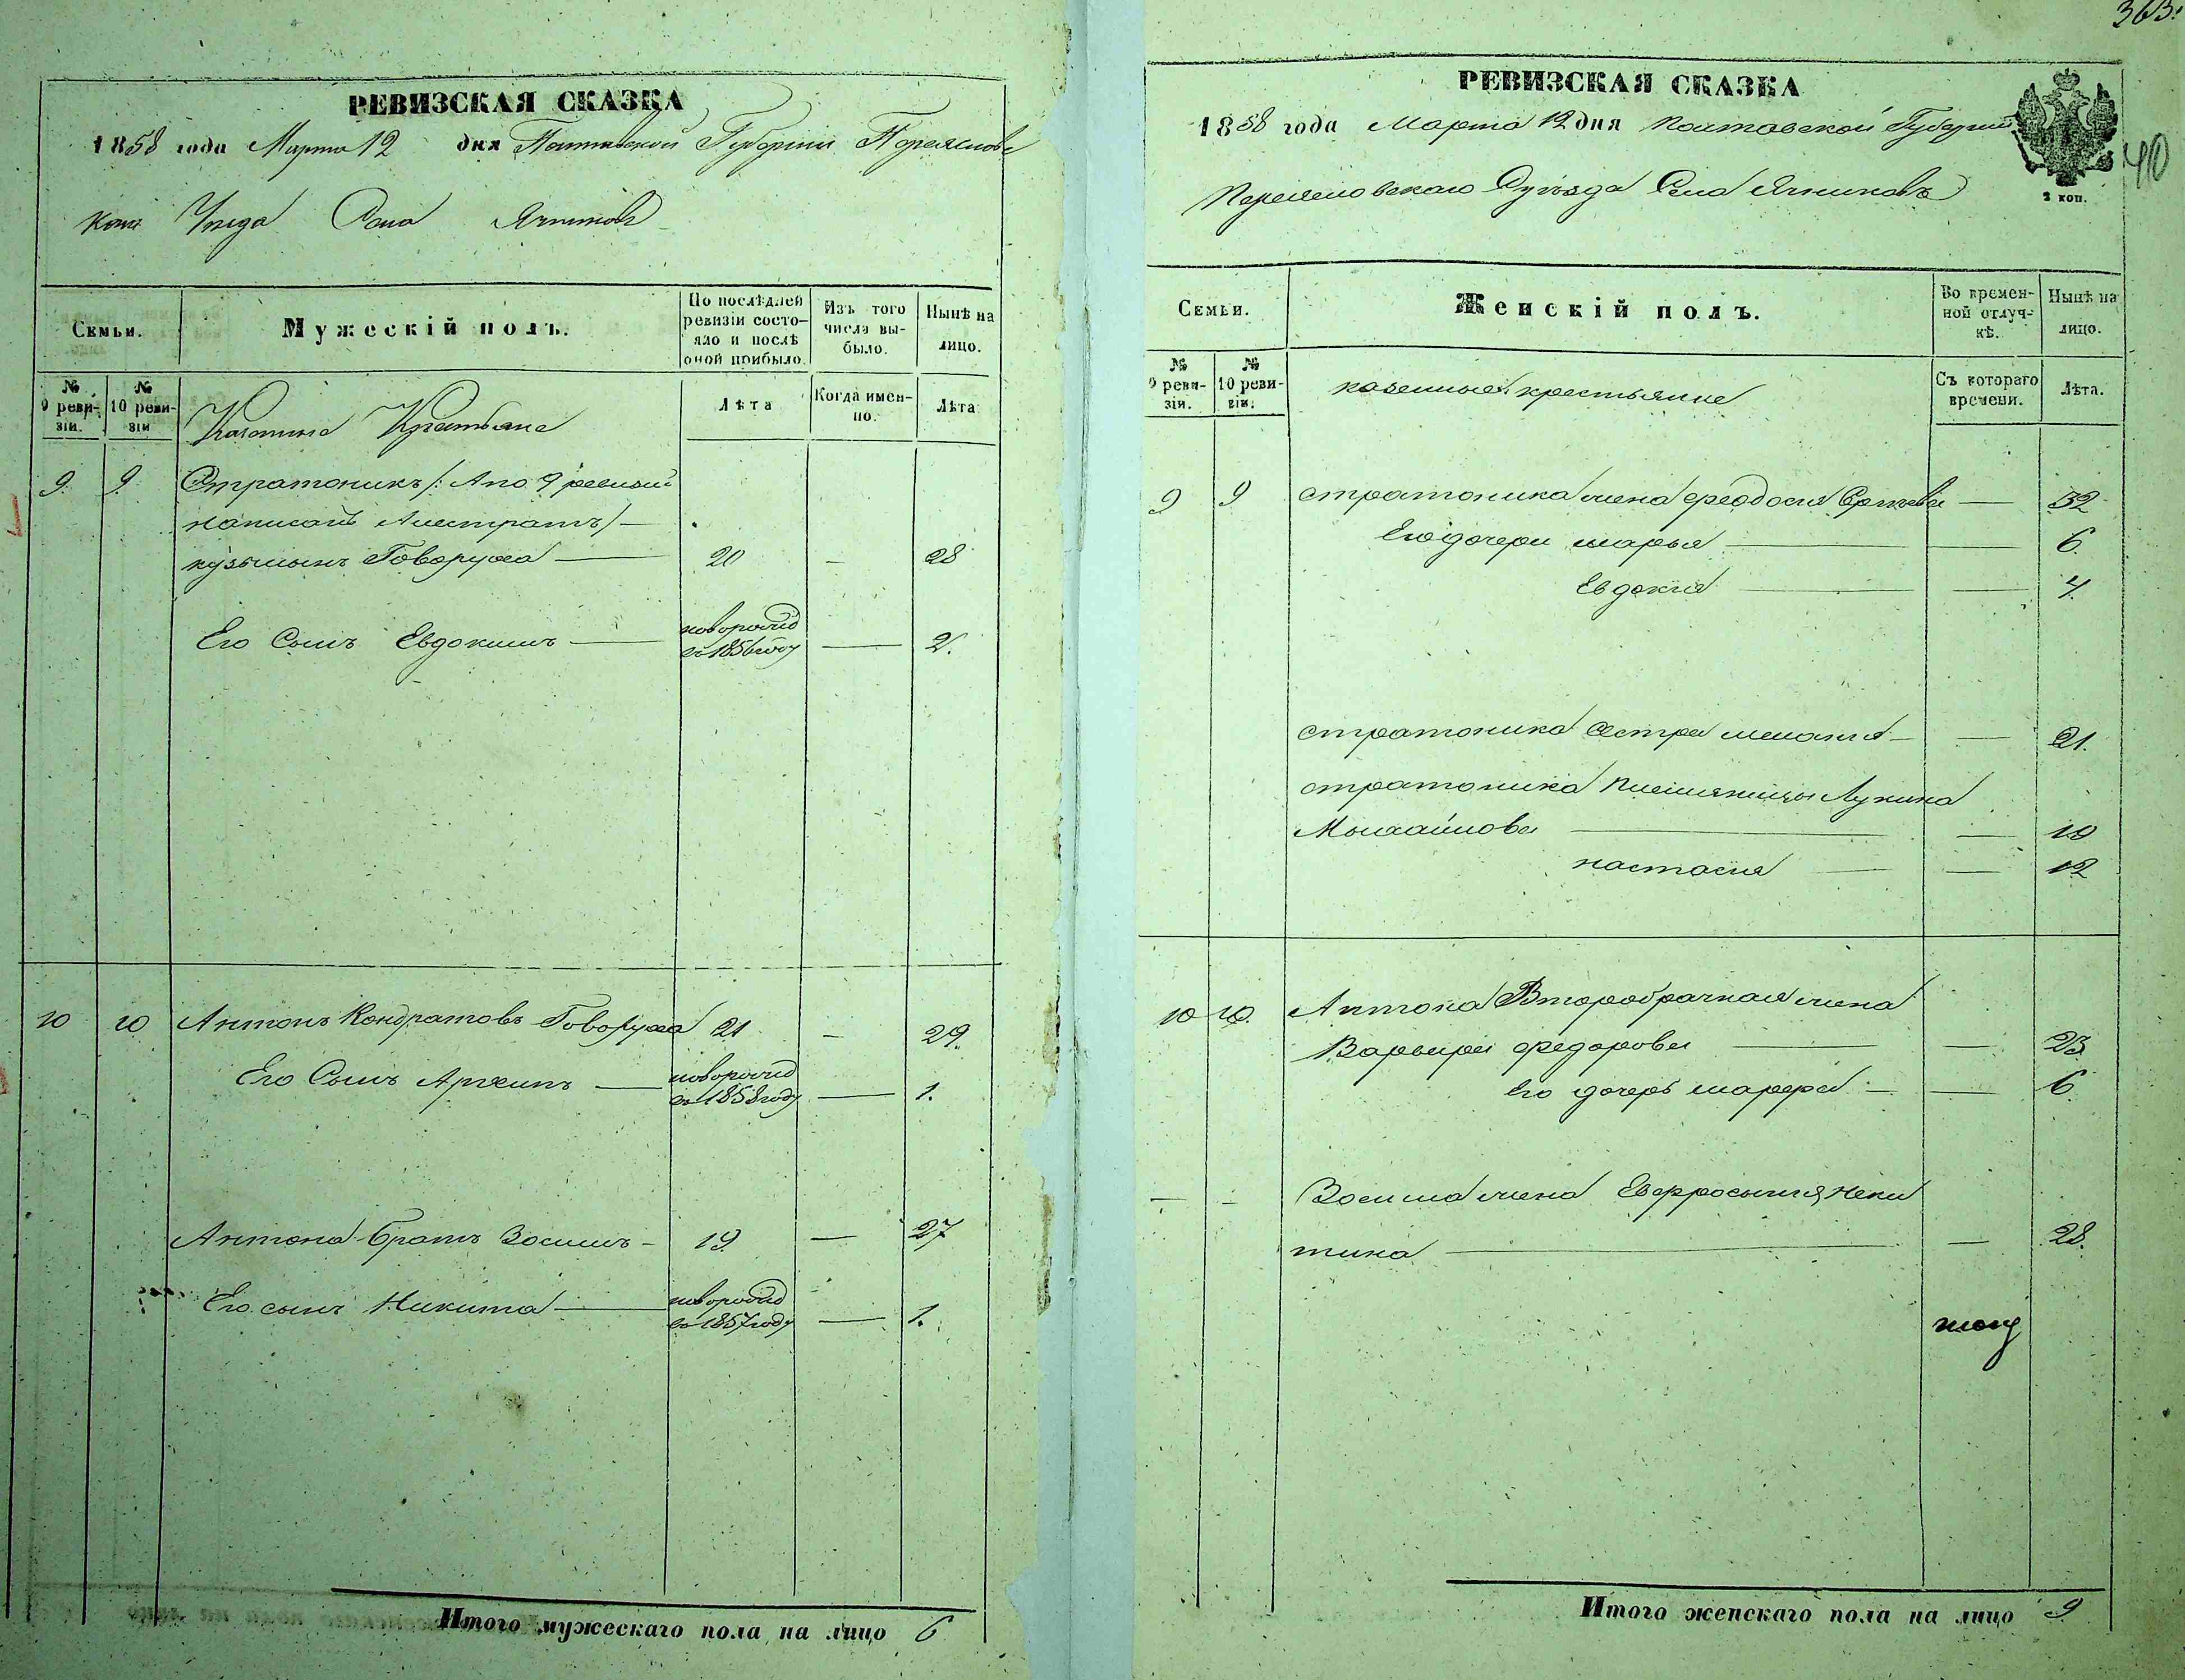 РЕВИЗСКАЯ СКАЗКА
1858 года Марта 12 дня Полтавской Губернии Переяслов
ского Уезда Села Ячников
Семьи.
Мужескій полъ.
По послѣдней ревизіи состояло и послѣ оной прибыло.
Изъ того числа выбыло.
Нынѣ на лицо.
№ 9 ревизіи.
№ 10 ревизіи
Казенные Крестьяне
Лѣта
Когда именно.
Лѣта
9. 9. Стратоникъ /: А по 9 ревизии
написанъ Алистратъ/ —
кузьминъ Говоруха — 20 — 28
Его Сынъ Евдокимъ — новорожд
въ 1856 году — 2.
10 10 Антонъ Кондратовъ Говоруха 21 — 29.
Его Сынъ Архипъ — новорожд
въ 1858 году — 1.
Антона братъ Зосимъ — 19 — 27
Его сынъ Никита — новорожд
въ 1857 году — 1.
Итого мужескаго пола на лицо 6
363.
40
РЕВИЗСКАЯ СКАЗКА
1858 года Марта 12 дня Полтавской Губернии
Переясловскаго Уезда Села Ячниковъ
2 коп.
Семьи.
Женскій полъ.
Во временной отлучкѣ.
Нынѣ на лицо.
№ 9 ревизіи.
№ 10 ревизіи.
казенные крестьяне
Съ котораго времени.
Лѣта.
9 9 стратоника жена феодосия — 32
Его дочери марья — 6.
Евдокия — 4.
стратоника сестра мелания — 21.
стратоника племянницы Лукина
Михайлова — 19
настасия — 12
10 10. Антона Второбрачная жена
Варвара федорова — 23
его дочерь марфа — 6
Зосима жена Евфросыния Ники
тина — 28.
Итого женскаго пола на лицо 9